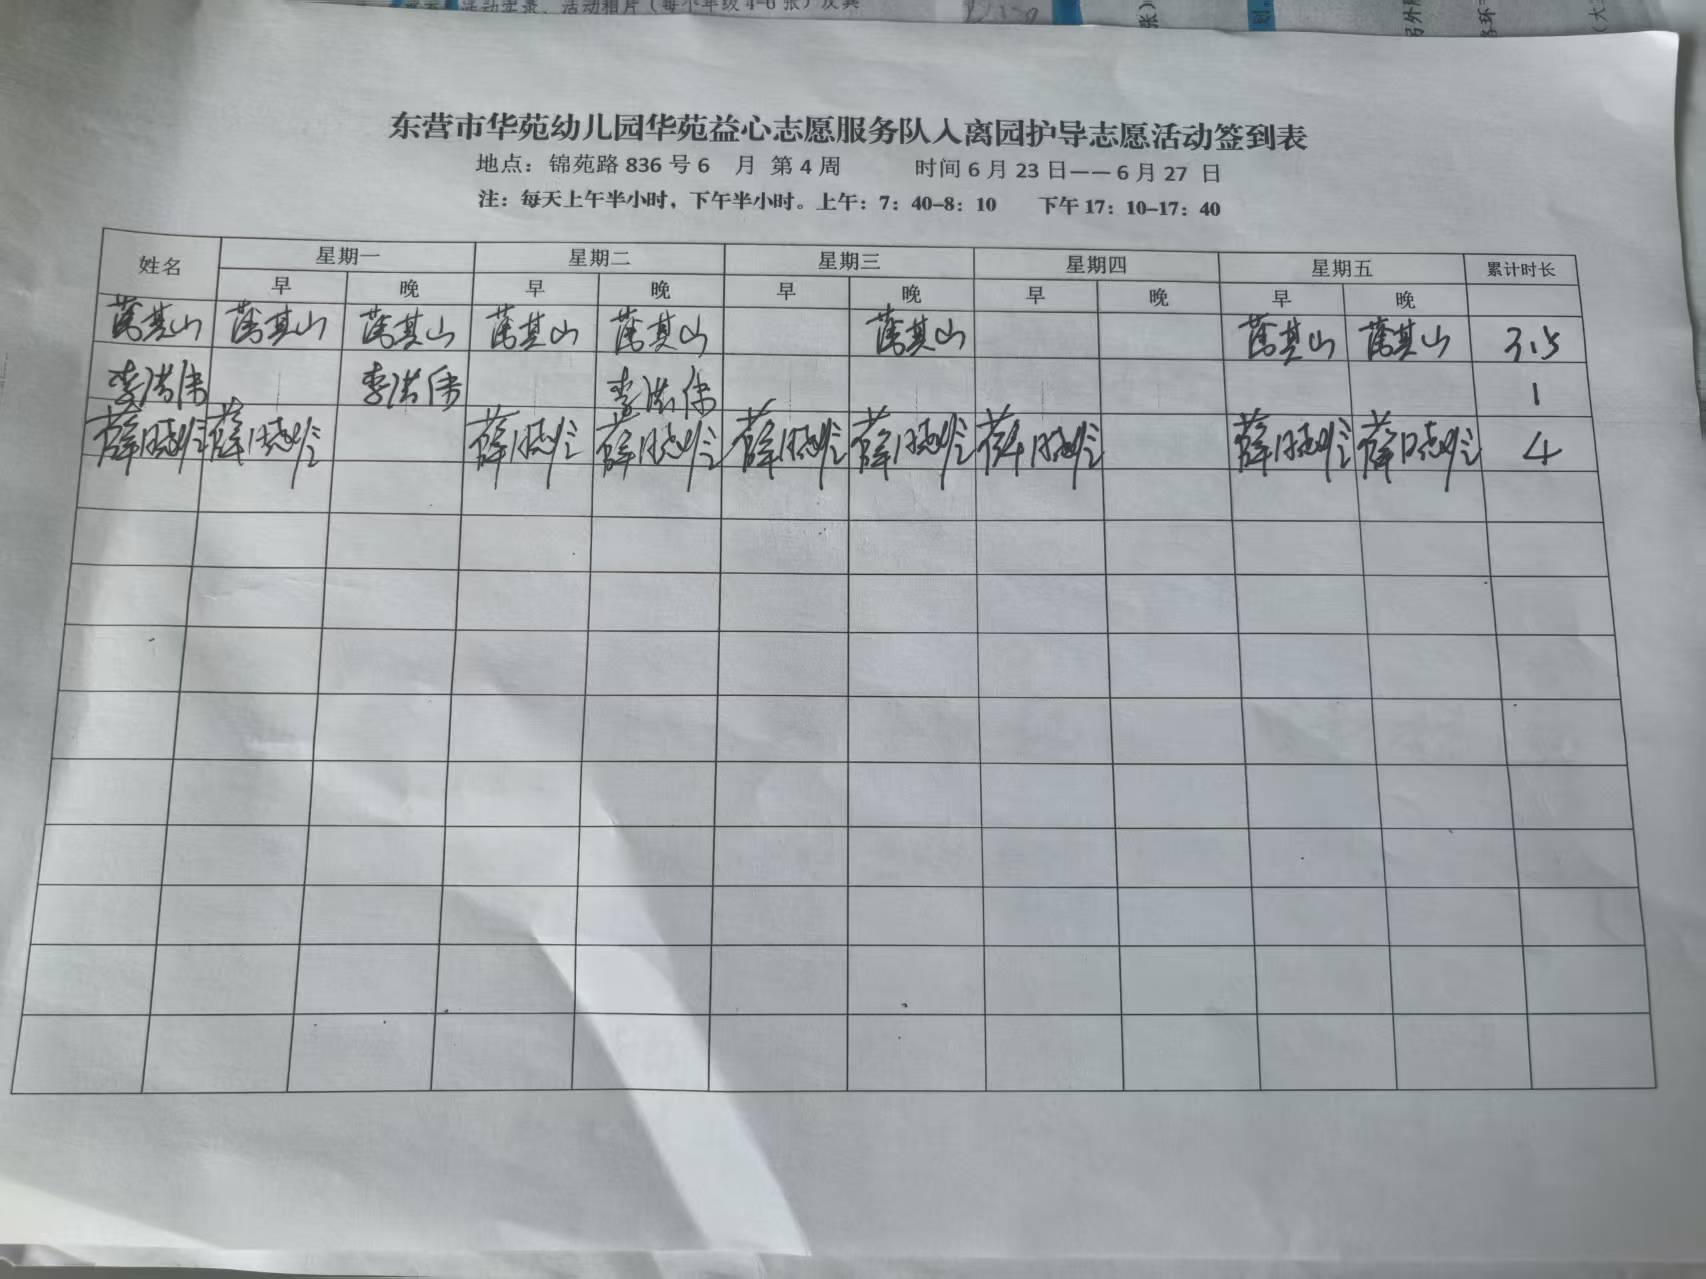 活动实录、活动相片（每个年级4-6张）及其
东营市华苑幼儿园华苑益心志愿服务队入离园护导志愿活动签到表
地点：锦苑路 836 号 6 月 第 4 周 时间 6 月 23 日——6 月 27 日
注：每天上午半小时，下午半小时。上午：7：40-8：10 下午 17：10-17：40
姓名 星期一 星期二 星期三 星期四 星期五 累计时长
早 晚 早 晚 早 晚 早 晚 早 晚
其山 其山 其山 其山 其山 其山 其山 其山 3.5
李洪伟 李洪伟 李洪伟 1
薛晓 薛晓 薛晓 薛晓 薛晓 薛晓 薛晓 薛晓 薛晓 4